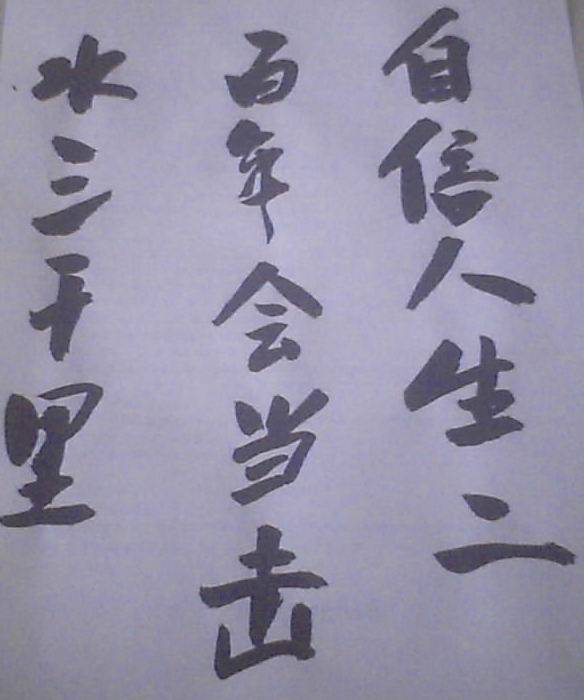 自信人生二
百年会当击
水三千里